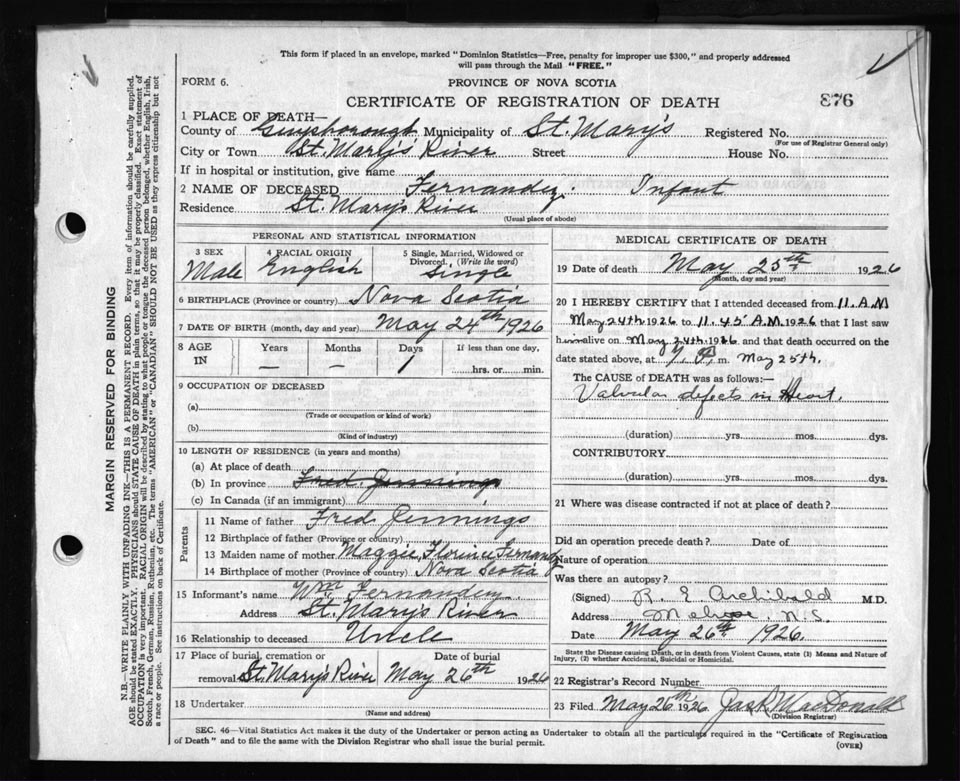 This form if placed in an envelope, marked "Dominion Statistics—Free, penalty for improper use $300," and properly addressed
will pass through the Mail "FREE."
FORM 6.
PROVINCE OF NOVA SCOTIA
CERTIFICATE OF REGISTRATION OF DEATH
876
1 PLACE OF DEATH—
County of Guysborough Municipality of St. Mary's Registered No.
(For use of Registrar General only)
City or Town St. Mary's River Street House No.
If in hospital or institution, give name
2 NAME OF DECEASED Fernandez. Infant
Residence St. Mary's River
(Usual place of abode)
PERSONAL AND STATISTICAL INFORMATION
3 SEX Male
4 RACIAL ORIGIN English
5 Single, Married, Widowed or Divorced. (Write the word) Single
6 BIRTHPLACE (Province or country) Nova Scotia
7 DATE OF BIRTH (month, day and year) May 24th 1926
8 AGE IN Years — Months — Days 1 If less than one day, hrs. or min.
9 OCCUPATION OF DECEASED
(a)
(Trade or occupation or kind of work)
(b)
(Kind of industry)
10 LENGTH OF RESIDENCE (in years and months)
(a) At place of death
(b) In province Fred Jennings
(c) In Canada (if an immigrant)
Parents
11 Name of father Fred Jennings
12 Birthplace of father (Province or country)
13 Maiden name of mother Maggie Florence Fernandez
14 Birthplace of mother (Province or country) Nova Scotia
15 Informant's name Wm Fernandez
Address St. Mary's River
16 Relationship to deceased Uncle
17 Place of burial, cremation or removal Date of burial
St. Mary's River May 26th 1926
18 Undertaker
(Name and address)
MEDICAL CERTIFICATE OF DEATH
19 Date of death May 25th 1926
(Month, day and year)
20 I HEREBY CERTIFY that I attended deceased from 11. A.M
May 24th 1926 to 11.45 A.M. 1926 that I last saw
him alive on May 24th 1926 and that death occurred on
date stated above, at 7 P. m. May 25th.
The CAUSE OF DEATH was as follows:—
Valvular defects in Heart.
(duration) yrs. mos. dys.
CONTRIBUTORY
(duration) yrs. mos. dys.
21 Where was disease contracted if not at place of death?
Did an operation precede death? Date of
Nature of operation
Was there an autopsy?
(Signed) R. E Archibald M.D.
Address Melrose, N.S.
Date May 26th 1926.
State the Disease causing Death, or in death from Violent Causes, state (1) Means and Nature of
Injury, (2) whether Accidental, Suicidal or Homicidal.
22 Registrar's Record Number
23 Filed May 26th 1926 MacDonald
(Division Registrar)
SEC. 46—Vital Statistics Act makes it the duty of the Undertaker or person acting as Undertaker to obtain all the particulars required in the "Certificate of Registration
of Death" and to file the same with the Division Registrar who shall issue the burial permit.
(OVER)
MARGIN RESERVED FOR BINDING
N.B.—WRITE PLAINLY WITH UNFADING INK—THIS IS A PERMANENT RECORD. Every item of information should be carefully supplied.
AGE should be stated EXACTLY. PHYSICIANS should STATE CAUSE OF DEATH in plain terms, so that it may be properly classified. Exact statement of
OCCUPATION is very important. RACIAL ORIGIN will be described by stating to what people or tongue the deceased person belonged, whether English, Irish,
Scotch, French, German, Russian, Ruthenian, etc. The terms "AMERICAN" or "CANADIAN" SHOULD NOT BE USED as they express citizenship but not
a race or people. See instructions on back of Certificate.